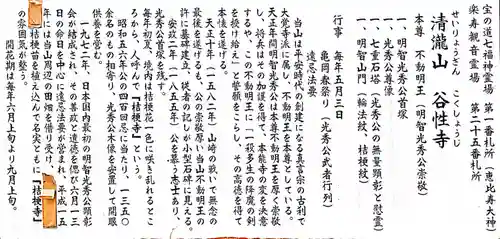 宝の道七福神霊場　第一番札所（恵比寿大神）
楽寿観音霊場　第二十五番札所
せいりょうざん　こくしょうじ
清瀧山　谷性寺
本尊　不動明王（明智光秀公崇敬）
一、明智光秀公首塚
一、光秀公尊像
一、七重石塔（光秀公の無量顕彰と慰霊）
一、明智山門（輪法紋、桔梗紋）
行事　毎年五月三日
亀岡春祭り（光秀公武者行列）
遠忌法要
当山は平安時代の創建になる真言宗の古刹で
大覚寺派に属し、不動明王を本尊としている。
天正年間明智光秀公は本尊不動明王を厚く崇敬
し、将兵はその加護を得て、本能寺の変を決意
するや、この不動明王に「一殺多生の降魔の剣
を授け給え」と誓願をこらし、その高徳を得て
本懐を達する。
天正十年（一五八二年）山崎の戦いで無念の
最後を遂げるも、公の崇敬厚い当山不動明王の
許に墓碑建立、従者の記しが小型石碑に見える。
安政二年（一八五五年）公を慕う志士あり、
光秀公首塚を残す。
毎年初夏、境内は桔梗花一色に咲き乱れるとこ
ろから、人呼んで「桔梗寺」という。
昭和五六年公の四百回忌に当たり、一三五〇
余名のもの相寄り、光秀公木像を安置して開眼
供養を営む。
一九七二年、日本国内最初の明智光秀公顕彰
会が結成され、その善政と遺徳を偲び六月一三
日の命日を中心に遠忌法要が営まれ、平成一五
年には当山周辺の田畑を借り受け、
る桔梗苗を植え込んで名実ともに『桔梗寺』
の雰囲気が整う。
開花期は毎年六月上旬より九月上旬。